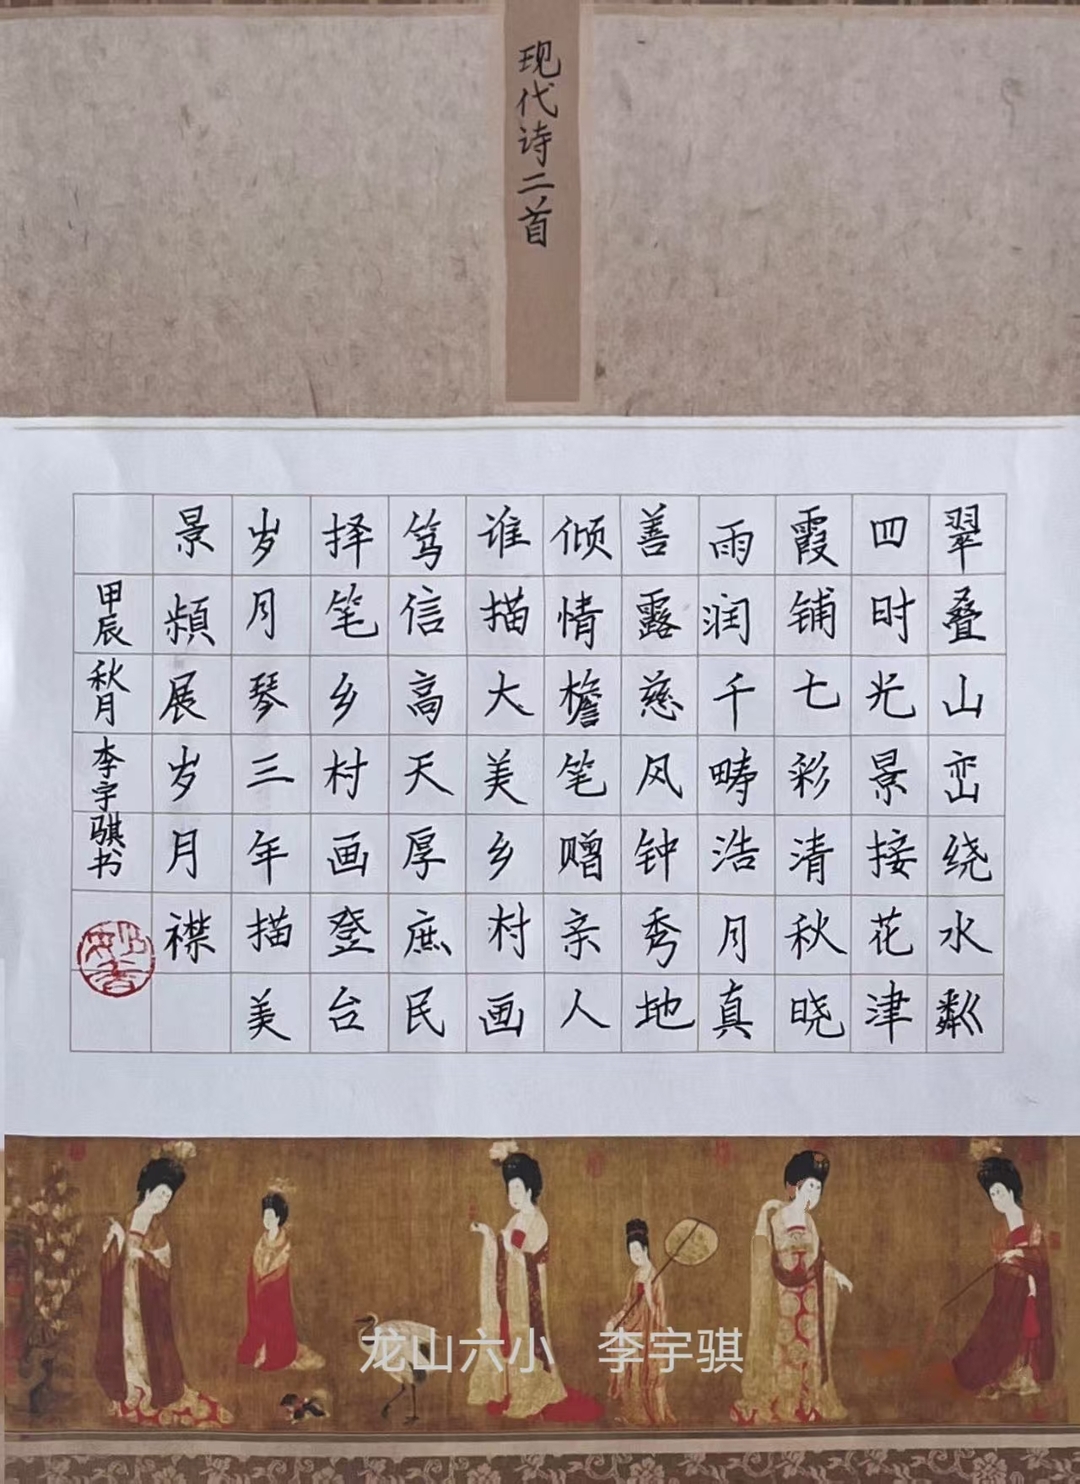 现代诗二首
翠叠山峦绕水粼
四时光景接花津
霞铺七彩清秋晓
雨润千畴浩月真
善露慈风钟秀地
倾情檐笔赠亲人
谁描大美乡村画
笃信高天厚庶民
择笔乡村画登台
岁月琴三年描美
景频展岁月襟
甲辰秋月李宇骐书
龙山六小 李宇骐